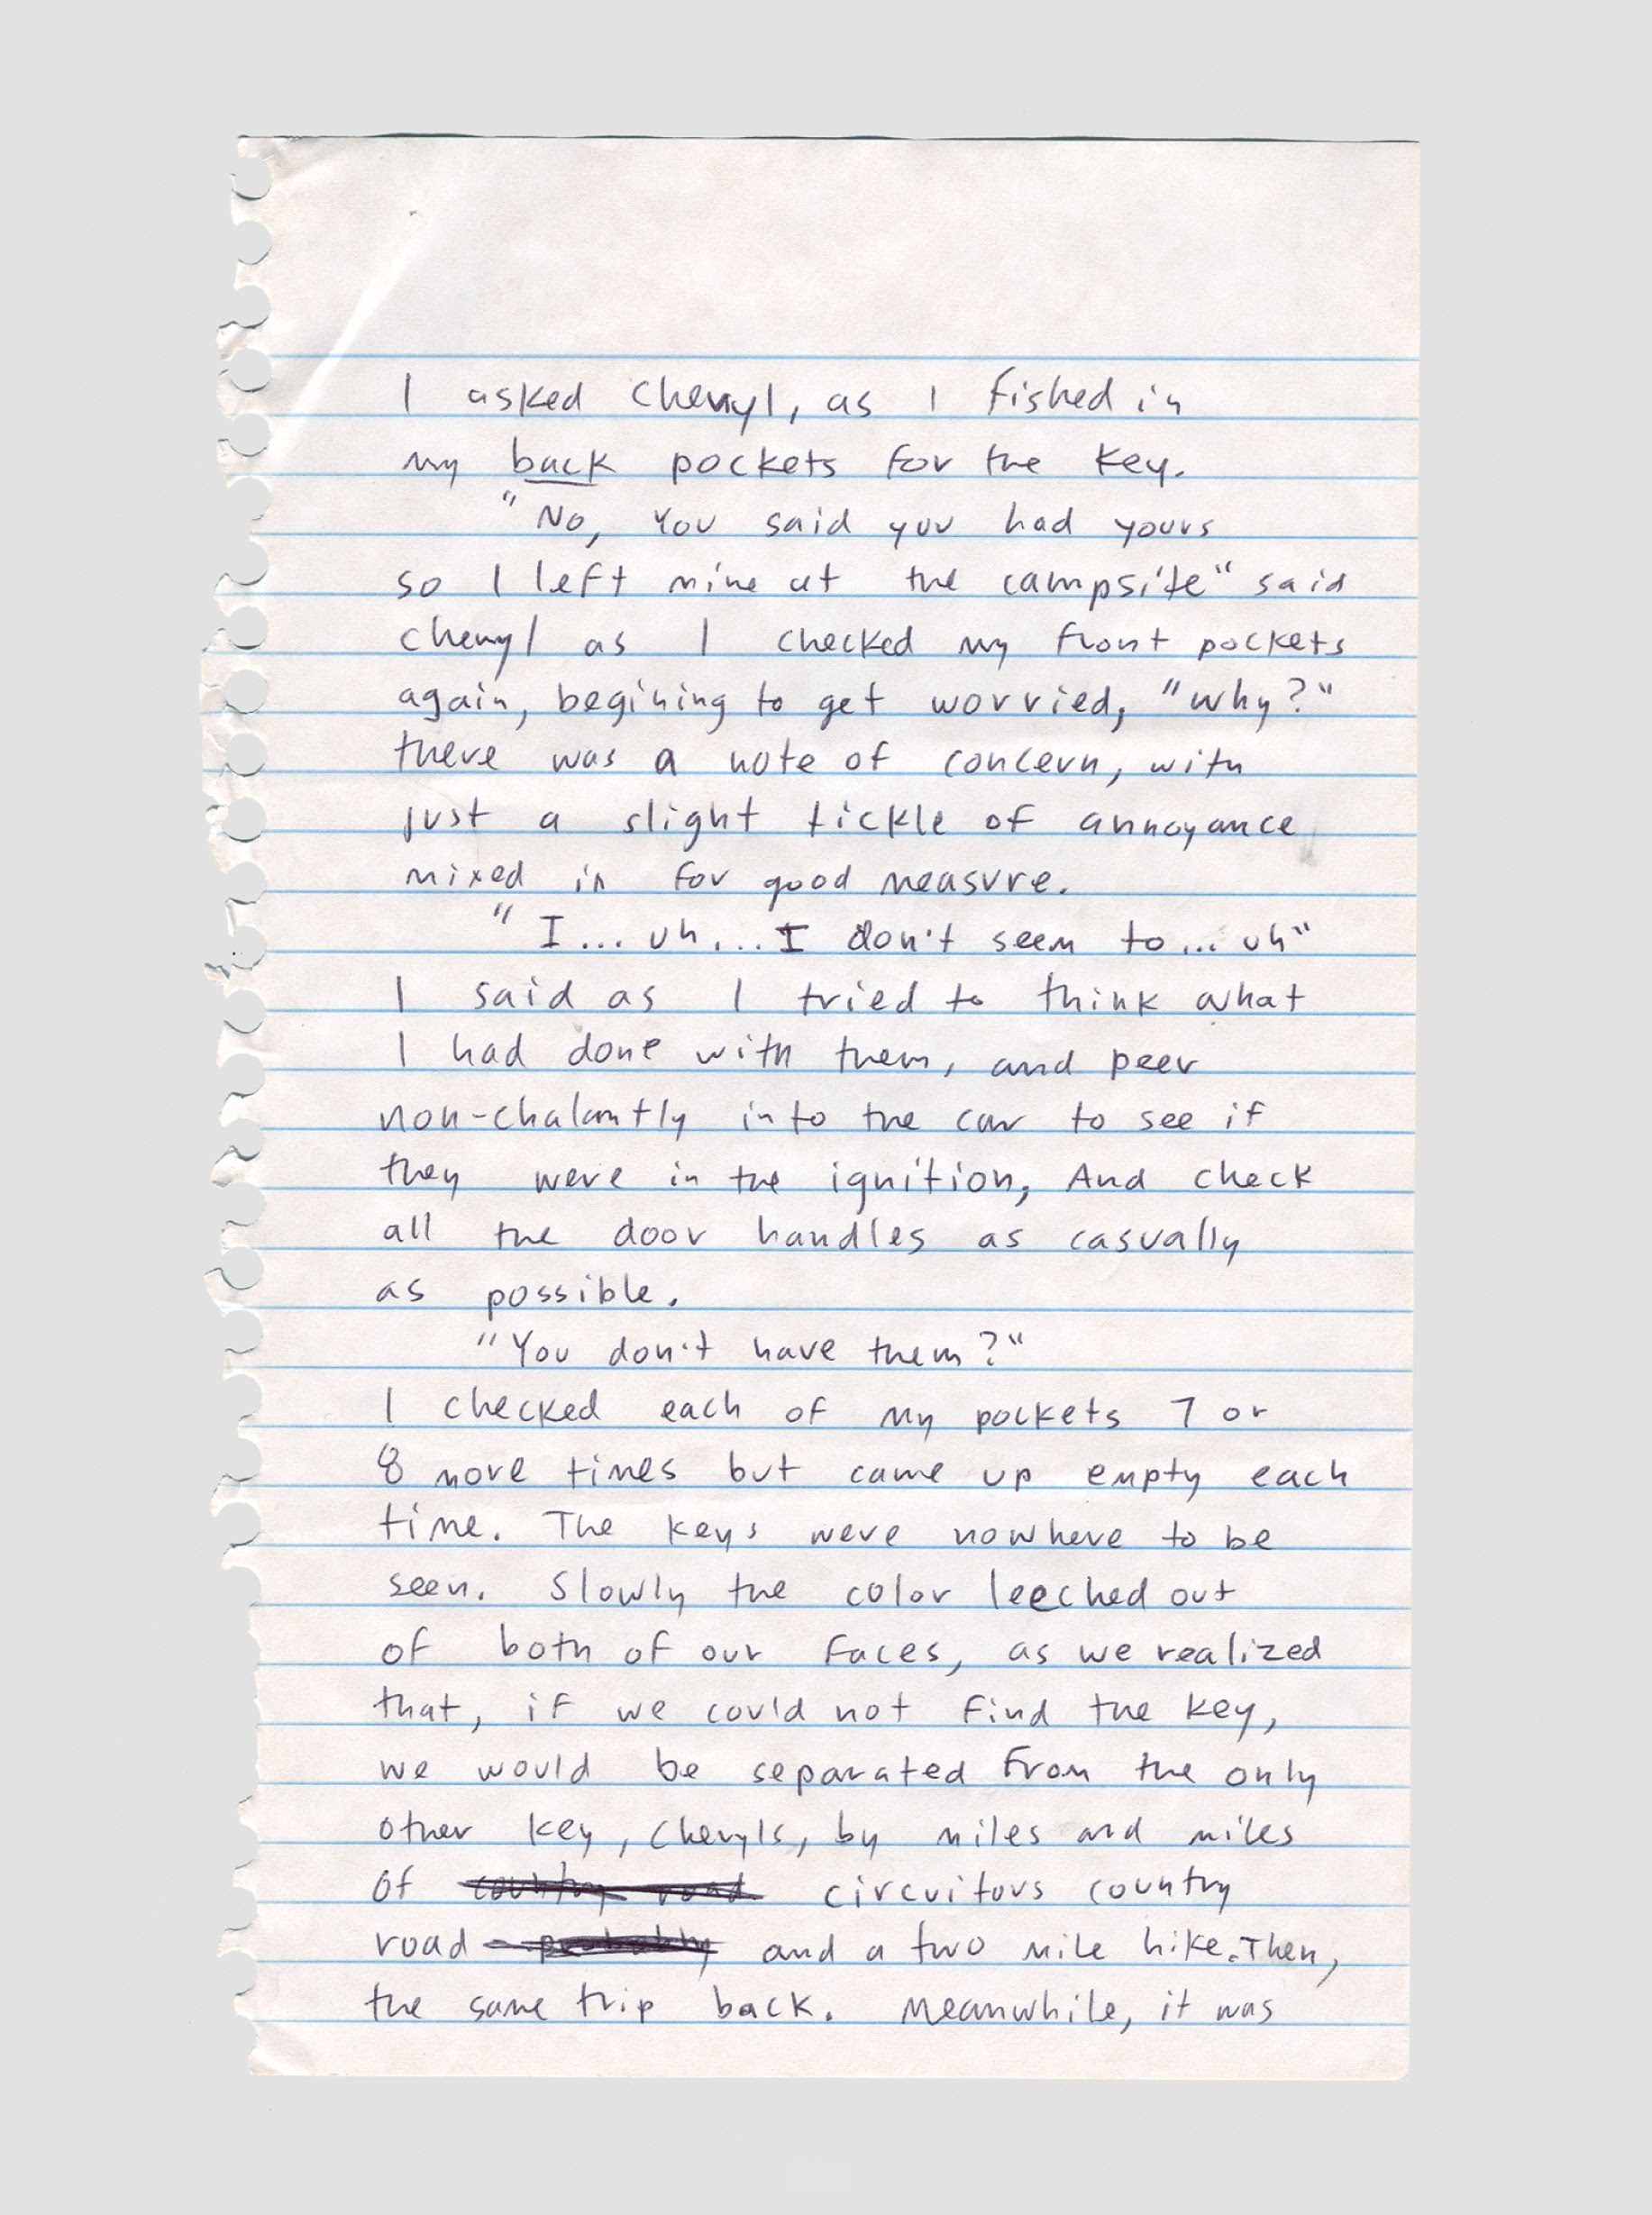 I asked Cheryl, as I fished in
my back pockets for the key.
"No, You said you had yours
so I left mine at the campsite" said
Cheryl as I checked my front pockets
again, begining to get worried, "why?"
there was a note of concern, with
just a slight tickle of annoyance
mixed in for good measure.
"I... uh... I don't seem to... uh"
I said as I tried to think what
I had done with them, and peer
non-chalantly into the car to see if
they were in the ignition, And check
all the door handles as casually
as possible.
"You don't have them?"
I checked each of my pockets 7 or
8 more times but came up empty each
time. The keys were nowhere to be
seen. Slowly the color leeched out
of both of our faces, as we realized
that, if we could not find the key,
we would be separated from the only
other key, Cheryls, by miles and miles
of country road circuitous country
road - probably and a two mile hike. Then,
the same trip back. Meanwhile, it was